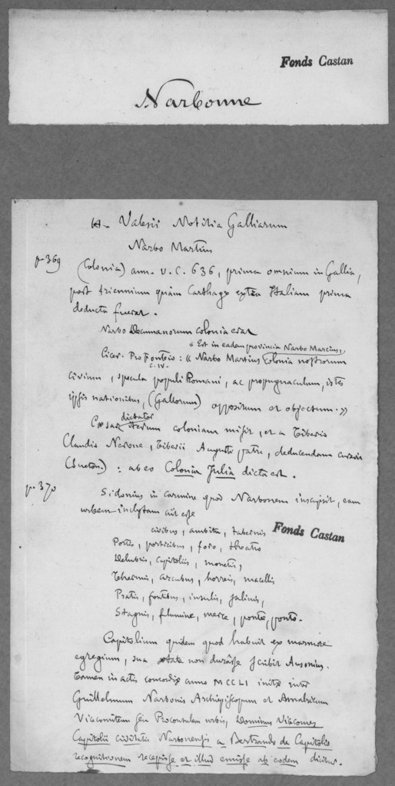 Fonds Castan
Narbonne
H. Valesii Notitia Galliarum
Narbo Martius
p. 369
(Colonia) ann. U.C. 636, prima omnium in Gallia,
post triennium quàm Carthago extra Italiam prima
deducta fuerat.
Narbo Decumanorum colonia erat
« Est in eadem provincia Narbo Martius,
Cicer. Pro Fonteio : « Narbo Martius colonia nostrorum
c. IV.
civium, specula populi Romani, ac propugnaculum, istis
ipsis nationibus, (Gallorum) oppositum et objectum. »
dictator
Cæsar iterum coloniam misit, et a Tiberio
Claudio Nerone, Tiberii Augusti patre, deducendam curavit
(Sueton.) : ab eo Colonia Julia dicta est.
p. 370
Sidonius in carmine quod Narbonem inscripsit, eam
urbem inclytam ait esse
civibus, ambitu, tabernis
Fonds Castan
Portis, porticibus, foro, theatro
Delubris, capitoliis, monetis,
Thermis, arcubus, horreis, macellis
Pratis, fontibus, insulis, salinis,
Stagnis, flumine, merce, ponte, ponto.
Capitolium quidem quod habuit ex marmore
egregium, sua ætate non durasse scribit Ausonius.
tamen in actis concordiæ anno MCCLI initæ inter
Guillelmum Narbonis Archiepiscopum et Amalricum
Vicecomitem seu Proconsulem urbis, Dominus Vicecomes
Capitolii civitatis Narbonensis a Bertrando de Capitolio
recognitionem recepisse et illud emisse ab eodem dicitur.